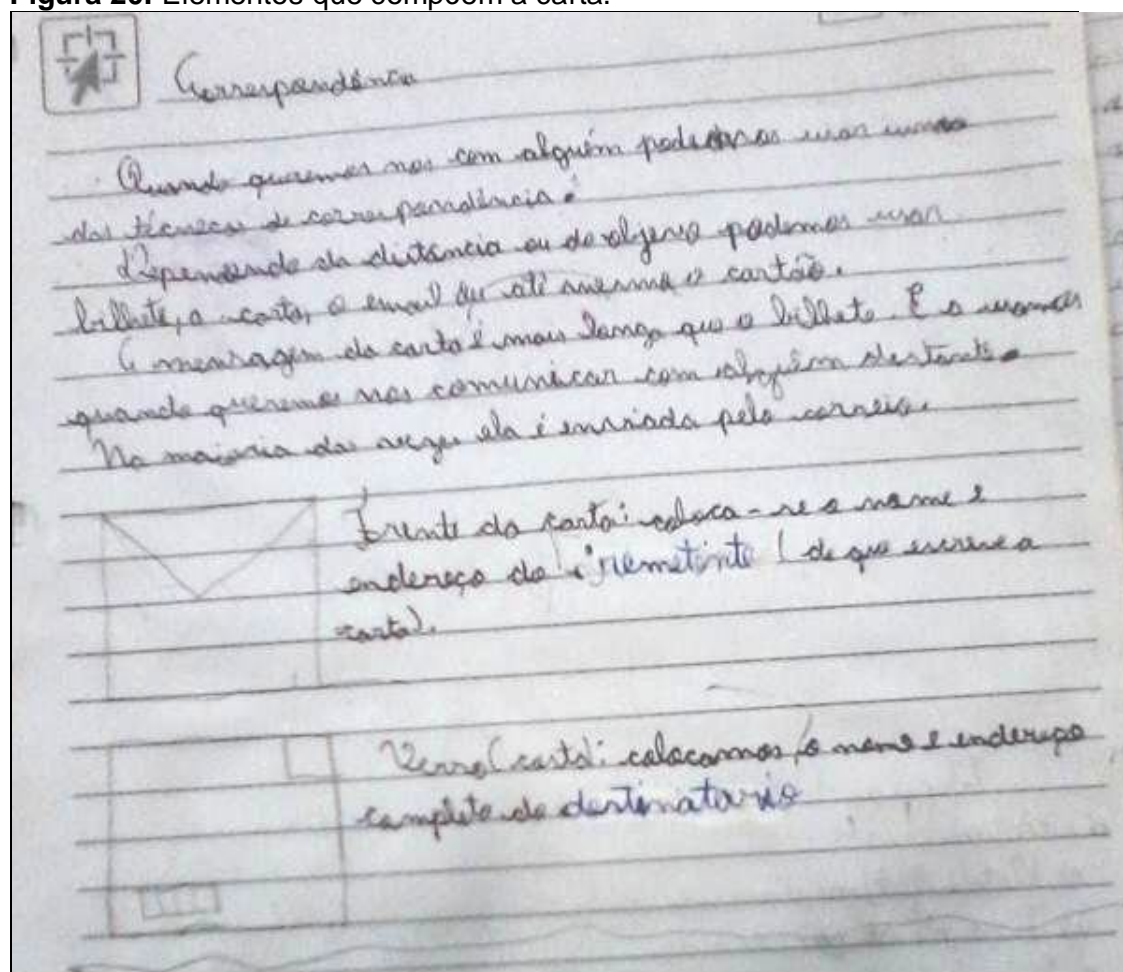 Figura 20. Elementos que compõem a carta.
Correspondência
Quando queremos nos com alguém podemos usar uma
das técnicas de correspondência.
Dependendo da distância ou do objevo podemos usar
bilhete, a carta, o email ou até mesmo o cartão.
A mensagem da carta é mais longa que o bilhete. E a usamos
quando queremos nos comunicar com alguém distante.
Na maioria das vezes ela é enviada pelo correio.
Frente da carta: coloca-se o nome e
endereço do remetente (de que escreve a
carta).
Verso (carta): colocamos o nome e endereço
completo do destinatario